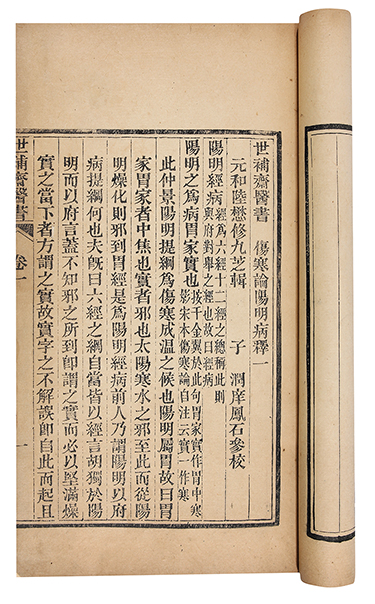 世補齋醫書 傷寒論陽明病釋一
元和陸懋修九芝輯 子 潤庠鳳石參校
陽明經病 經爲六經十二經之總稱此則
與府對舉之經也故曰經病
陽明之爲病胃家實也 按千金翼於此句胃家實作胃中寒
影宋本傷寒論自注云實一作寒
此仲景陽明提綱爲傷寒成温之候也陽明屬胃故曰胃
家胃家者中焦也實者邪也太陽寒水之邪至此而從陽
明燥化則邪到胃經是爲陽明經病前人乃謂陽明以府
病提綱何也夫旣曰六經之綱自當皆以經言胡獨於陽
明而以府言蓋不知邪之所到卽謂之實而必以堅滿燥
實之當下者方謂之實故實字之不解誤卽自此而起且
世補齋醫書 卷一 一